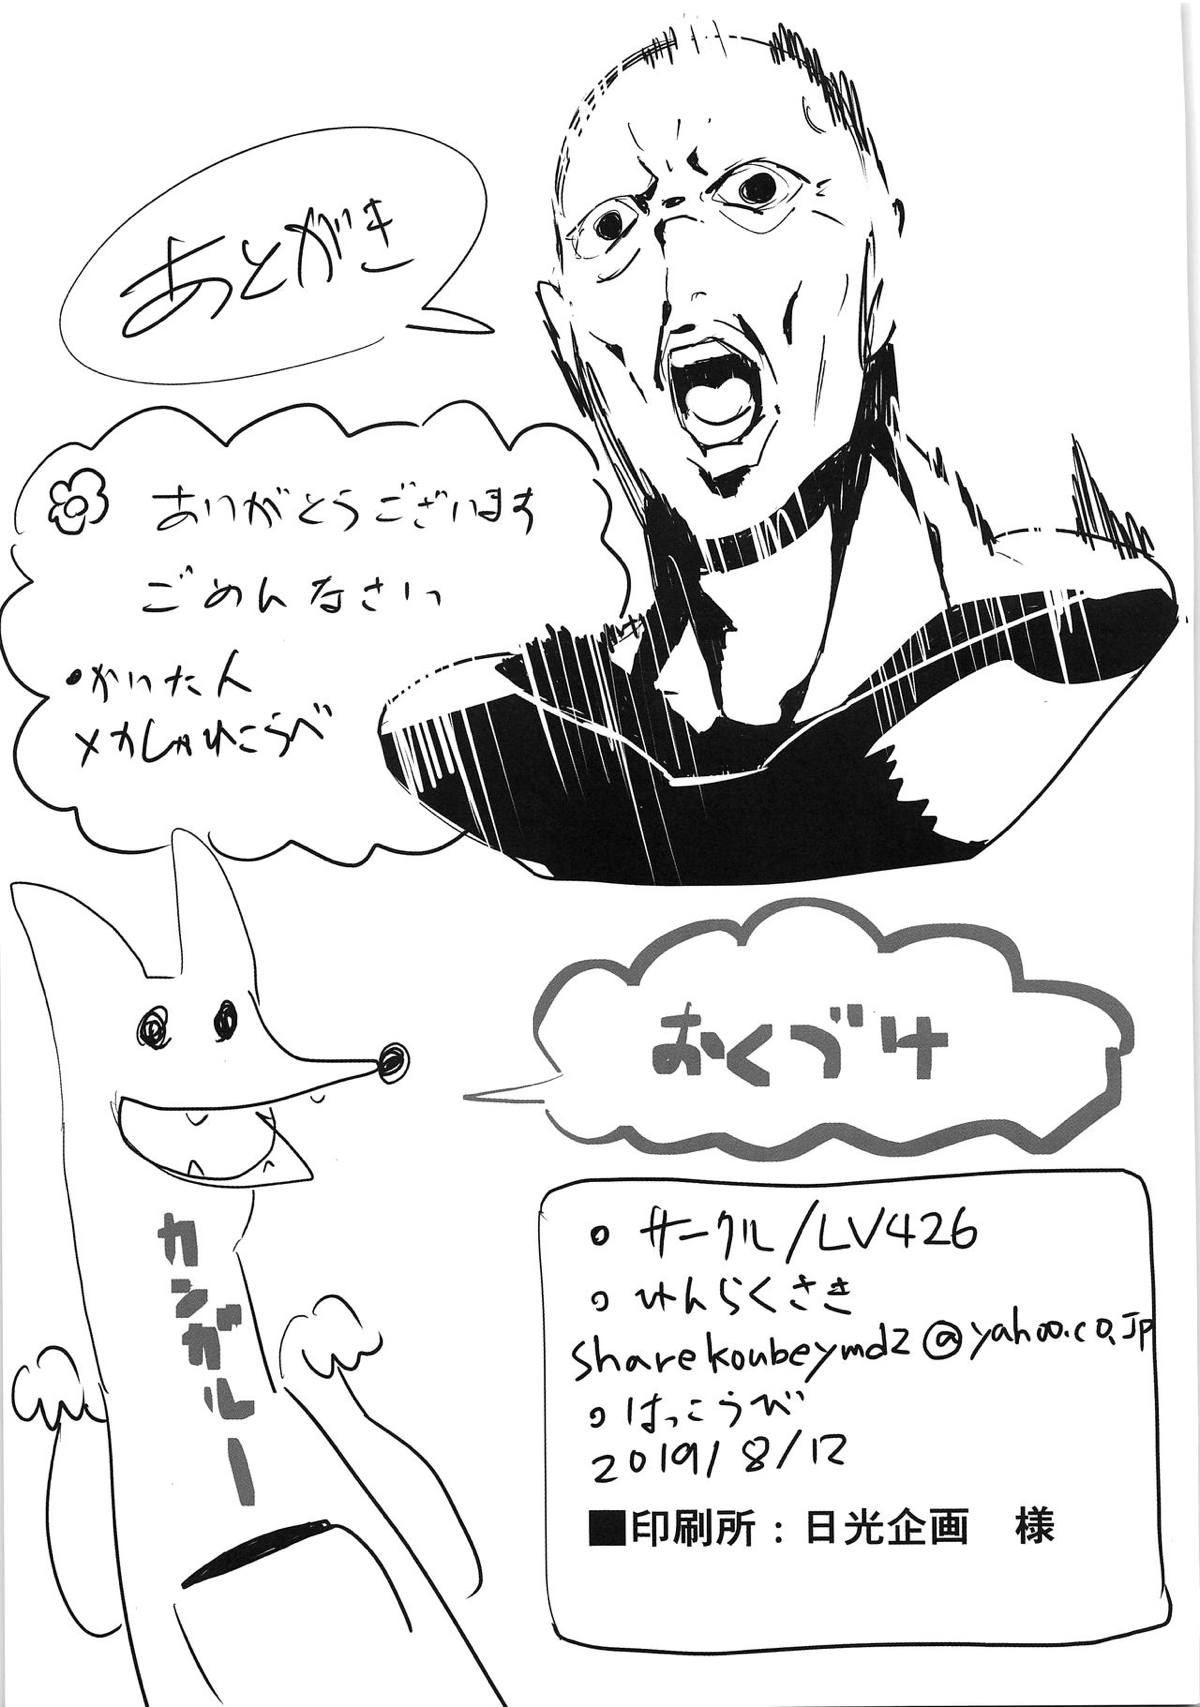 あとがき
ありがとうございます
ごめんなさいっ
・かいたん
メカしゃれこうべ
おくづけ
カンガルー
・サークル/LV426
・れんらくさき
sharekoubeymd2@yahoo.co.jp
・はっこうび
2019/8/12
■印刷所:日光企画 様